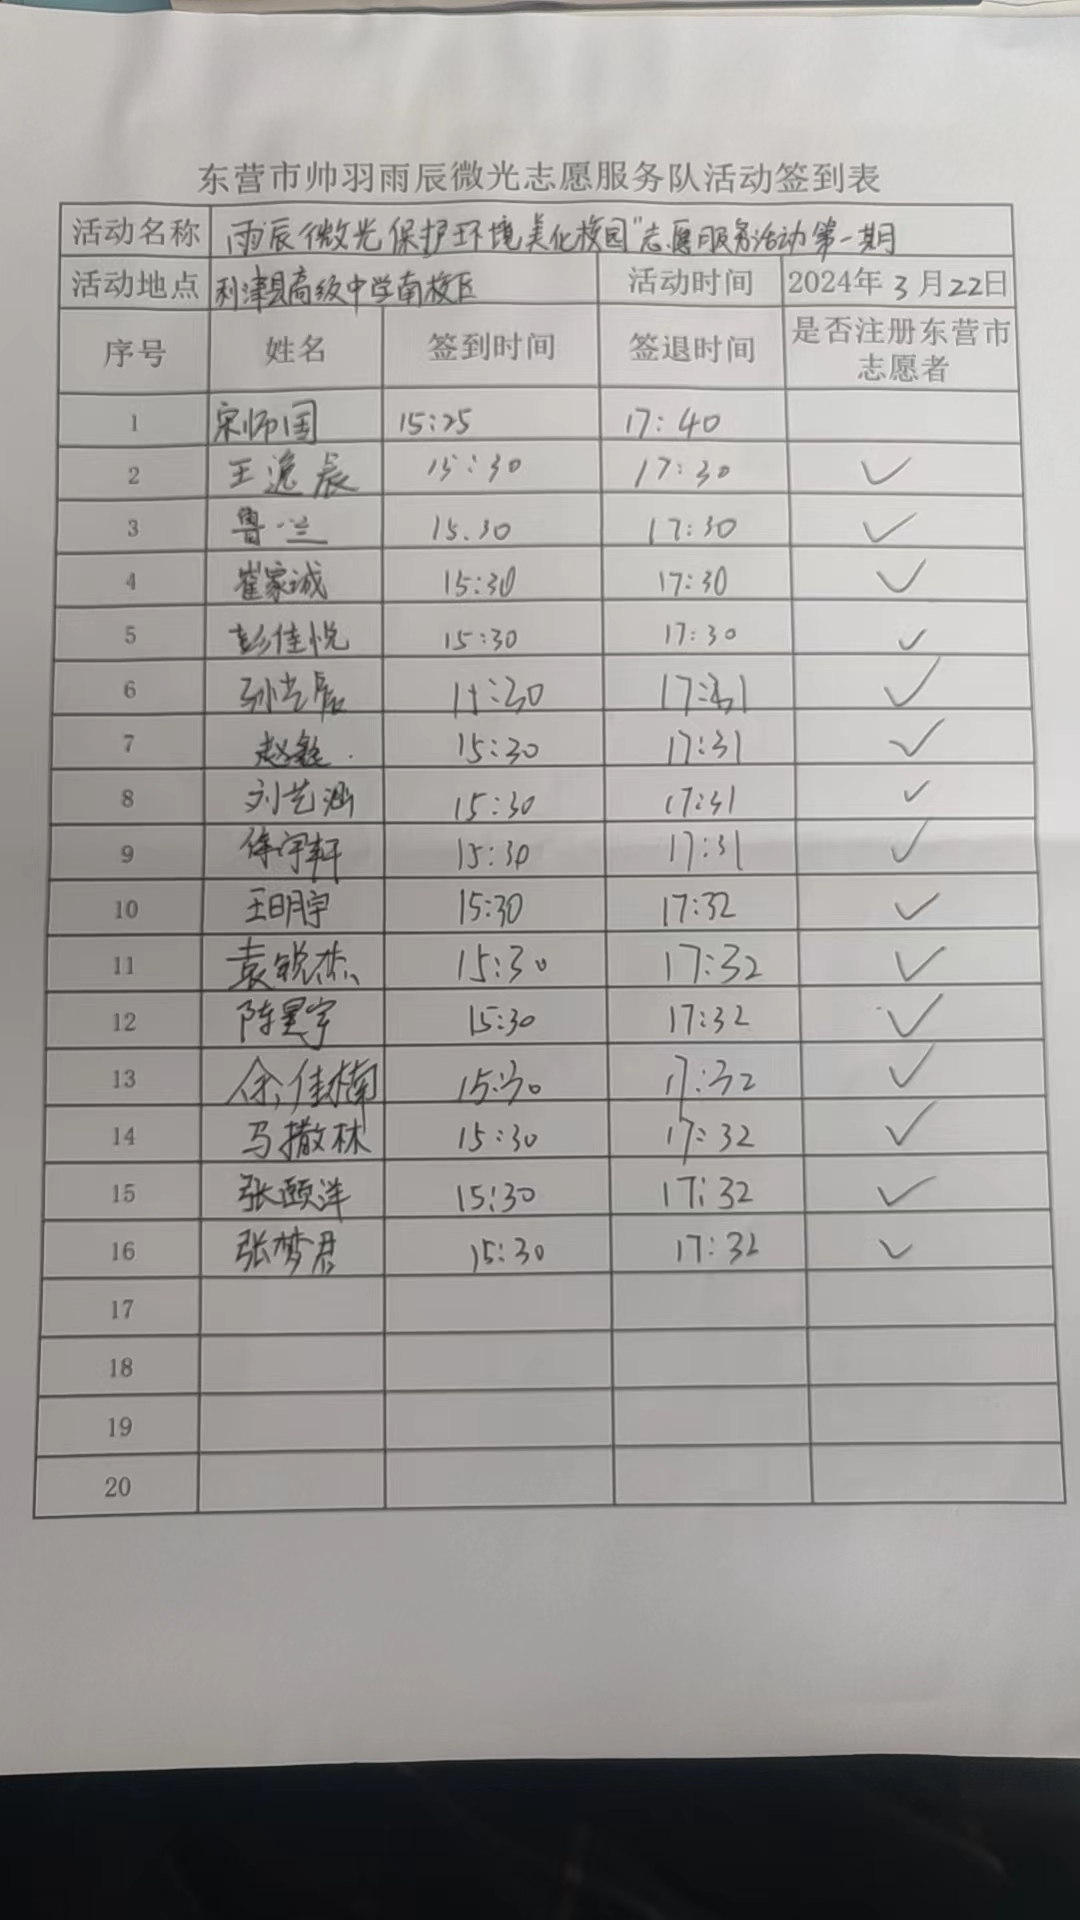 东营市帅羽雨辰微光志愿服务队活动签到表
活动名称 雨辰微光保护环境美化校园"志愿服务活动第一期
活动地点 利津县高级中学南校区 活动时间 2024年3月22日
序号 姓名 签到时间 签退时间 是否注册东营市
志愿者
1 宋师国 15:25 17:40
2 王逸辰 15:30 17:30 ✓
3 鲁兰 15.30 17:30 ✓
4 崔家诚 15:30 17:30 ✓
5 彭佳悦 15:30 17:30 ✓
6 17:31 ✓
7 15:30 17:31 ✓
8 刘艺涵 15:30 17:31 ✓
9 徐宇轩 15:30 17:31 ✓
10 王明宇 15:30 17:32 ✓
11 袁锐杰 15:30 17:32 ✓
12 陈昱宇 15:30 17:32 ✓
13 徐佳楠 15:30 17:32 ✓
14 马撒林 15:30 17:32 ✓
15 张颐洋 15:30 17:32 ✓
16 张梦君 15:30 17:32 ✓
17
18
19
20